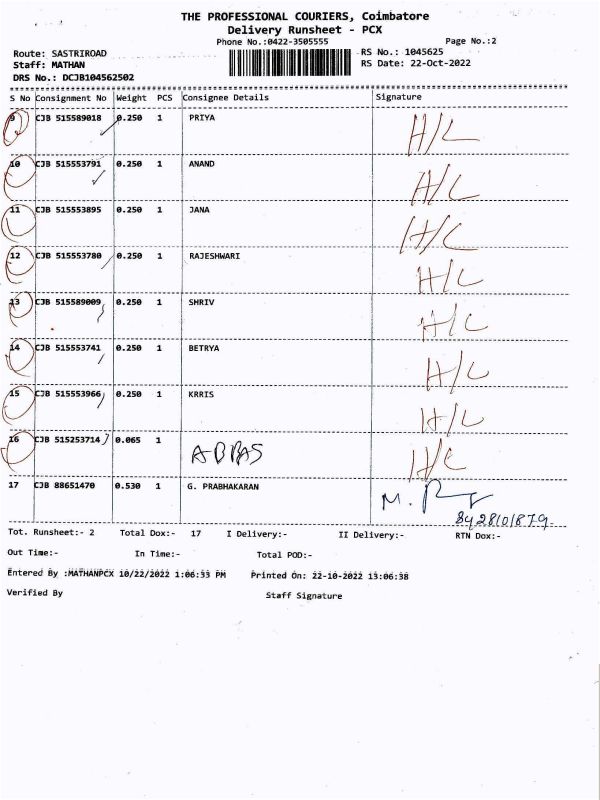 THE PROFESSIONAL COURIERS, Coimbatore
Delivery Runsheet - PCX
Phone No.:0422-3505555 Page No.:2
Route: SASTRIROAD RS No.: 1045625
Staff: MATHAN RS Date: 22-Oct-2022
DRS No.: DCJB104562502
S No Consignment No Weight PCS Consignee Details Signature
9 CJB 515589018 0.250 1 PRIYA H/C
10 CJB 515553791 0.250 1 ANAND H/C
11 CJB 515553895 0.250 1 JANA H/C
12 CJB 515553780 0.250 1 RAJESHWARI H/C
13 CJB 515589009 0.250 1 SHRIV H/C
14 CJB 515553741 0.250 1 BETRYA H/C
15 CJB 515553966 0.250 1 KRRIS H/C
16 CJB 515253714 0.065 1 ABBAS H/C
17 CJB 88651470 0.530 1 G. PRABHAKARAN M.
8428101879
Tot. Runsheet:- 2 Total Dox:- 17 I Delivery:- II Delivery:- RTN Dox:-
Out Time:- In Time:- Total POD:-
Entered By :MATHANPCX 10/22/2022 1:06:33 PM Printed On: 22-10-2022 13:06:38
Verified By Staff Signature